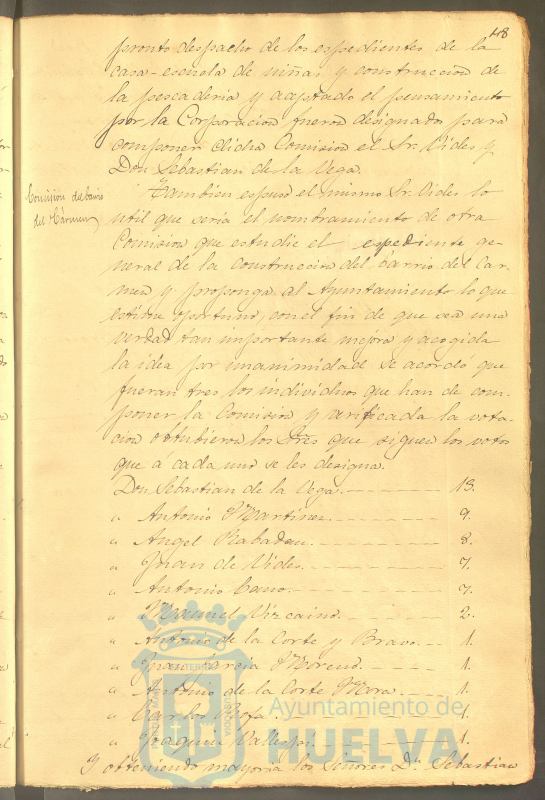 48
pronto despacho de los espedientes de la
casa-escuela de niñas y construccion de
la pescaderia y aceptado el pensamiento
por la Corporacion fueron designados para
componer dicha Comision el Sr. Vides y
Don Sebastian de la Vega.
Comision del barrio
del Cármen
Tambien espuso el mismo Sr. Vides lo
util que seria el nombramiento de otra
Comision que estudie el espediente ge-
neral de la construccion del barrio del Car-
men y proponga al Ayuntamiento lo que
estime oportuno, con el fin de que sea una
verdad tan importante mejora y acogida
la idea por unanimidad se acordó que
fueran tres los individuos que han de com-
poner la Comision y verificada la vota-
cion obtubieron los Sres que siguen los votos
que á cada uno se les designa.
Don Sebastian de la Vega. 13.
" Antonio Martinez. 9.
" Angel Rabadan. 8.
" Juan de Vides. 7.
" Antonio Cano. 7.
" Manuel Vizcaino. 2.
" Antonio de la Corte y Bravo. 1.
" Juan Garcia Moreno. 1.
" Antonio de la Corte Mora. 1.
" Carlos Rofa. 1.
" Joaquin Vallejo. 1.
Y obteniendo mayoria los Señores Dn. Sebastian
Ayuntamiento de
HUELVA